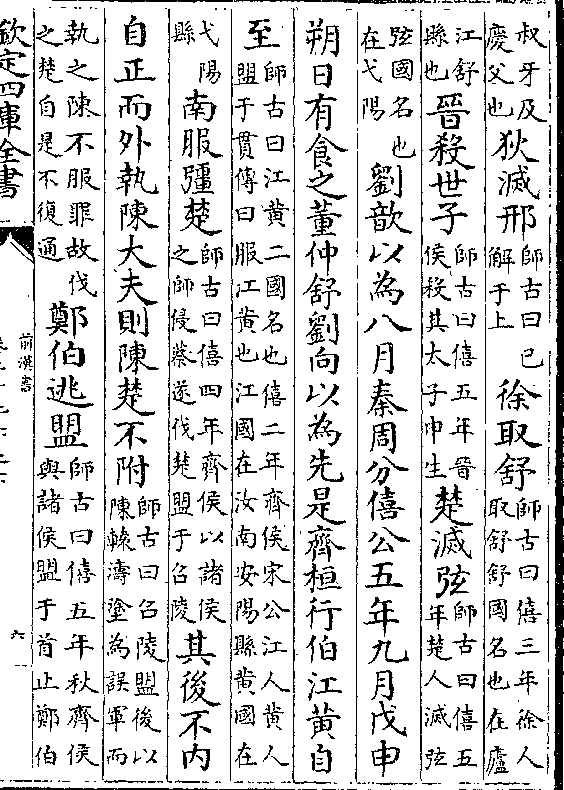 叔牙及慶父也狄滅邢師古曰已解于上徐取舒師古曰僖三年徐人取舒舒國名也在廬
江舒縣也晉殺世子師古曰僖五年晉侯殺其太子申生楚滅弦師古曰僖五年楚人滅弦
弦國名也在弋陽劉歆以為八月秦周分僖公五年九月戊申
朔日有食之董仲舒劉向以為先是齊桓行伯江黃自
至師古曰江黃二國名也僖二年齊侯宋公江人黃人盟于貫傳曰服江黃也江國在汝南安陽縣黃國在
弋陽縣南服彊楚師古曰僖四年齊侯以諸侯之師侵蔡遂伐楚盟于召陵其後不內
自正而外執陳大夫則陳楚不附師古曰召陵盟後以陳轅濤塗為誤軍而
執之陳不服罪故伐之楚自是不復通鄭伯逃盟師古曰僖五年秋齊侯與諸侯盟于首止鄭伯
欽定四庫全書
前漢書
六